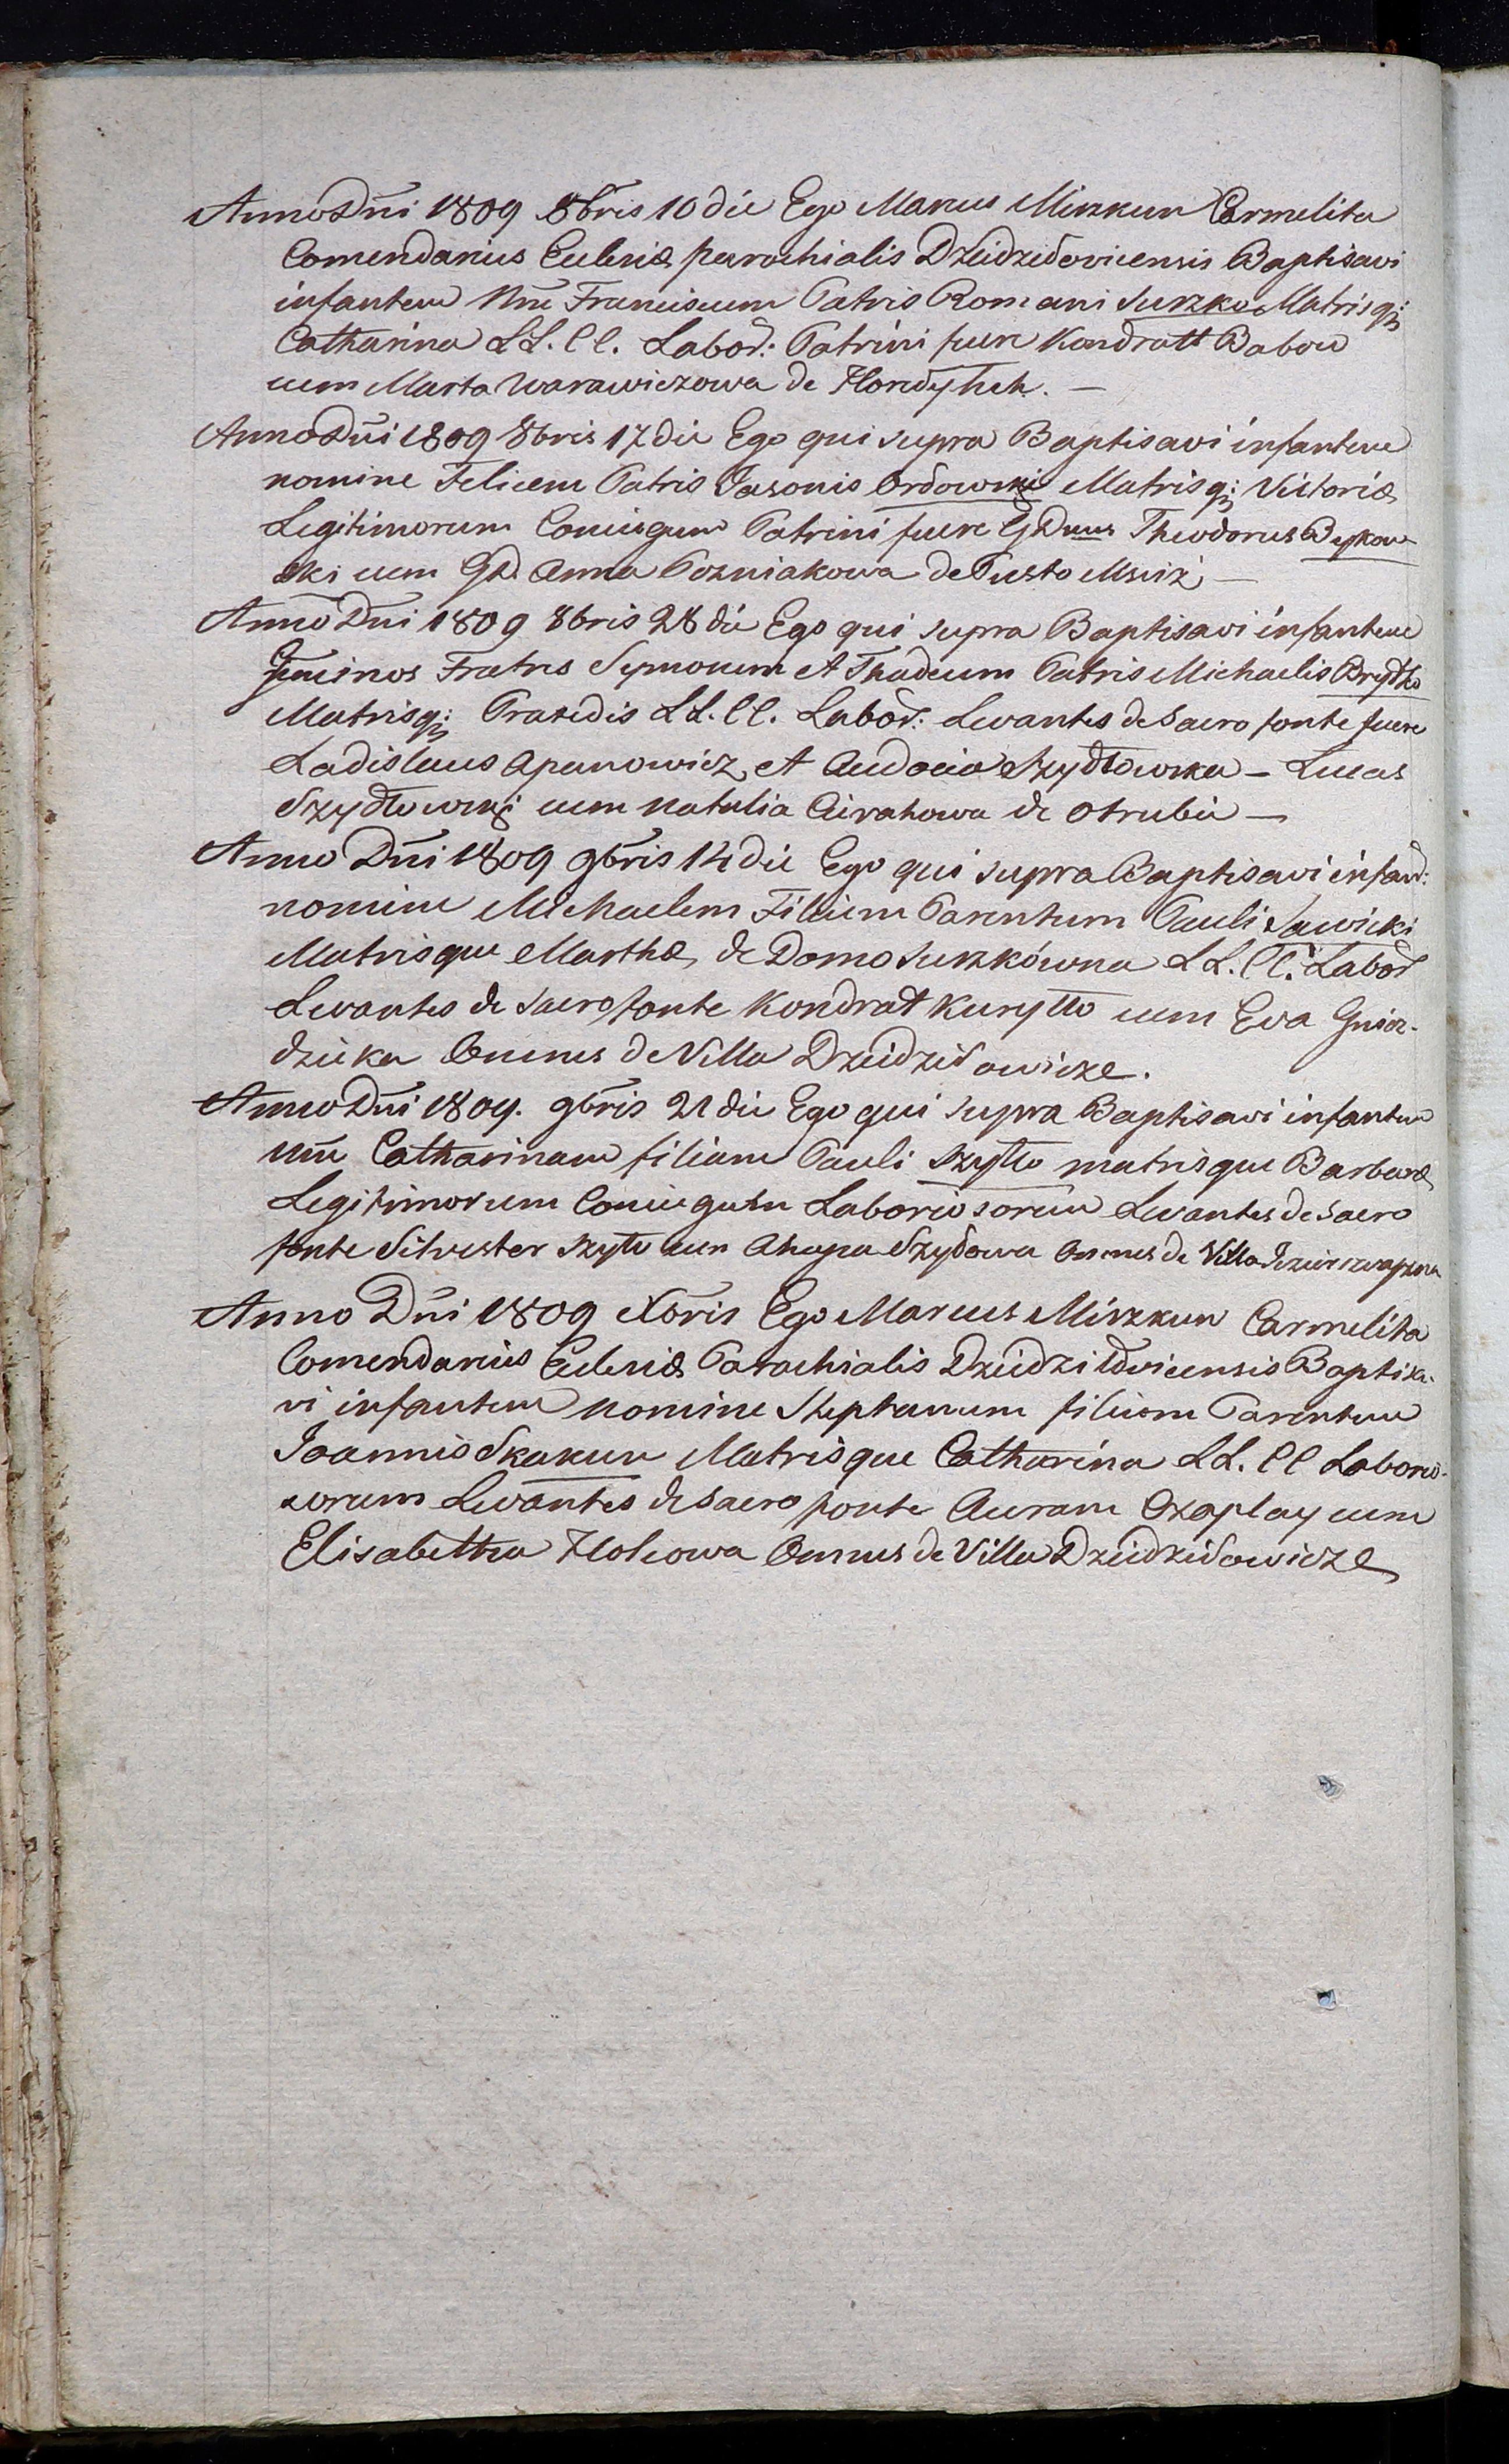 Anno Dni 1809 8bris 10 die Ego Marcus Mirzkun Carmelita
Comendarius Ecclesiæ parochialis Dziedziełovicensis Baptisavi
infantem Nne Franciscum Patris Romani Surzko Matrisq;
Catharina LL. CC. Labor: Patrini fuere Kondratt Babow
cum Marta Warawiczowa de
Anno Dni 1809 8bris 17 die Ego qui supra Baptisavi infantem
nomine Felicem Patris Jasonis Ordowski Matrisq; Victoriæ
Legitimorum Coniugum Patrini fuere GDnus Theodorus Bykow
ski cum GD. Anna Pozniakowa de Pusto Msciż —
Anno Dni 1809 8bris 28 die Ego qui supra Baptisavi infantem
Geminos Fratres Symonem et Thadeum Patris Michaelis Brydło
Matrisq; Praxedis LL. CC. Labor: Levantes de Sacro fonte fuere
Ladislaus Apanowicz et Audocia Szydłowska – Lucas
Szydłowski cum Natalia de Otrubia —
Anno Dni 1809 9bris 14 die Ego qui supra Baptisavi infant:
nomine Michaelem Filium Parentum Pauli Sawicki
Matrisque Marthæ de Domo Surzkówna LL. CC. Labor
Levantes de Sacro fonte Kondrat Kuryłło cum Eva Gniaz-
dzicka Omnes de Villa Dziedziłowicze.
Anno Dni 1809. 9bris 21 die Ego qui supra Baptisavi infantem
Nne Catharinam filiam Pauli Szyłło matrisque Barbaræ
Legitimorum Coniugum Laboriosorum Levantes de Sacro
fonte Silvester Szyło cum Ahapa Szydowa Omnes de Villa
Anno Dni 1809 Xbris Ego Marcus Mirzkun Carmelita
Comendarius Ecclesiæ Parochialis Dziedziłovicensis Baptisa-
vi infantem nomine Stephanum filium Parentum
Joannis Skakun Matrisque Catharina LL. CC Laborio-
sorum Levantes de Sacro fonte Auram Czaplay cum
Elisabettha Hołowa Omnes de Villa Dziedziłowicze